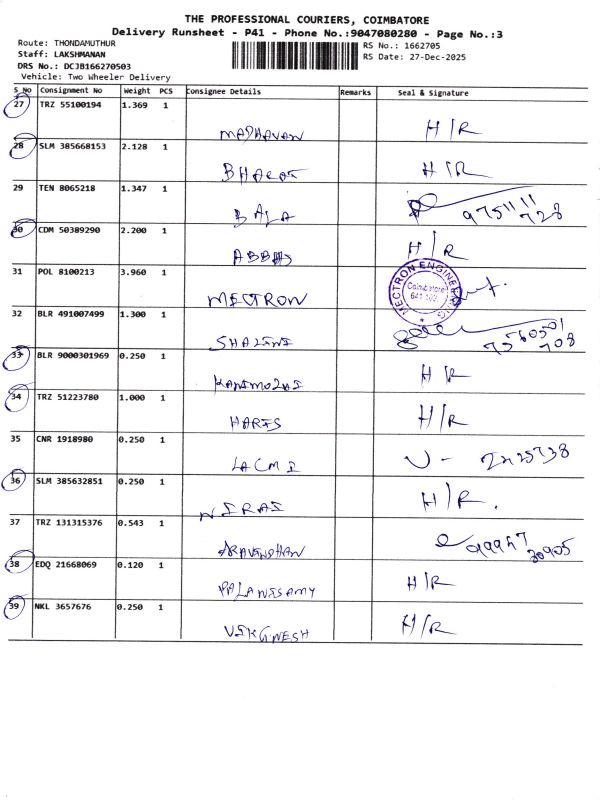 THE PROFESSIONAL COURIERS, COIMBATORE
Delivery Runsheet - P41 - Phone No.:9047080280 - Page No.:3
Route: THONDAMUTHUR
Staff: LAKSHMANAN
DRS No.: DCJB166270503
Vehicle: Two Wheeler Delivery
RS No.: 1662705
RS Date: 27-Dec-2025
S No Consignment No Weight PCS Consignee Details Remarks Seal & Signature
27 TRZ 55100194 1.369 1 MADHAVAN H/R
28 SLM 385668153 2.128 1 BHARAT H/R
29 TEN 8065218 1.347 1 BALA
30 CDM 50389290 2.200 1 ABBAS H/R
31 POL 8100213 3.960 1 MECTRON
MECTRON ENGINEERING
Coimbatore
32 BLR 491007499 1.300 1 SHALINI
33 BLR 9000301969 0.250 1 KANIMOZHI H/R
34 TRZ 51223780 1.000 1 HARIS H/R
35 CNR 1918980 0.250 1 LACMI
36 SLM 385632851 0.250 1 NIRAI H/R.
37 TRZ 131315376 0.543 1 ARAVINDHAN
38 EDQ 21668069 0.120 1 PALANISAMY H/R
39 NKL 3657676 0.250 1 VIKGNESH H/R